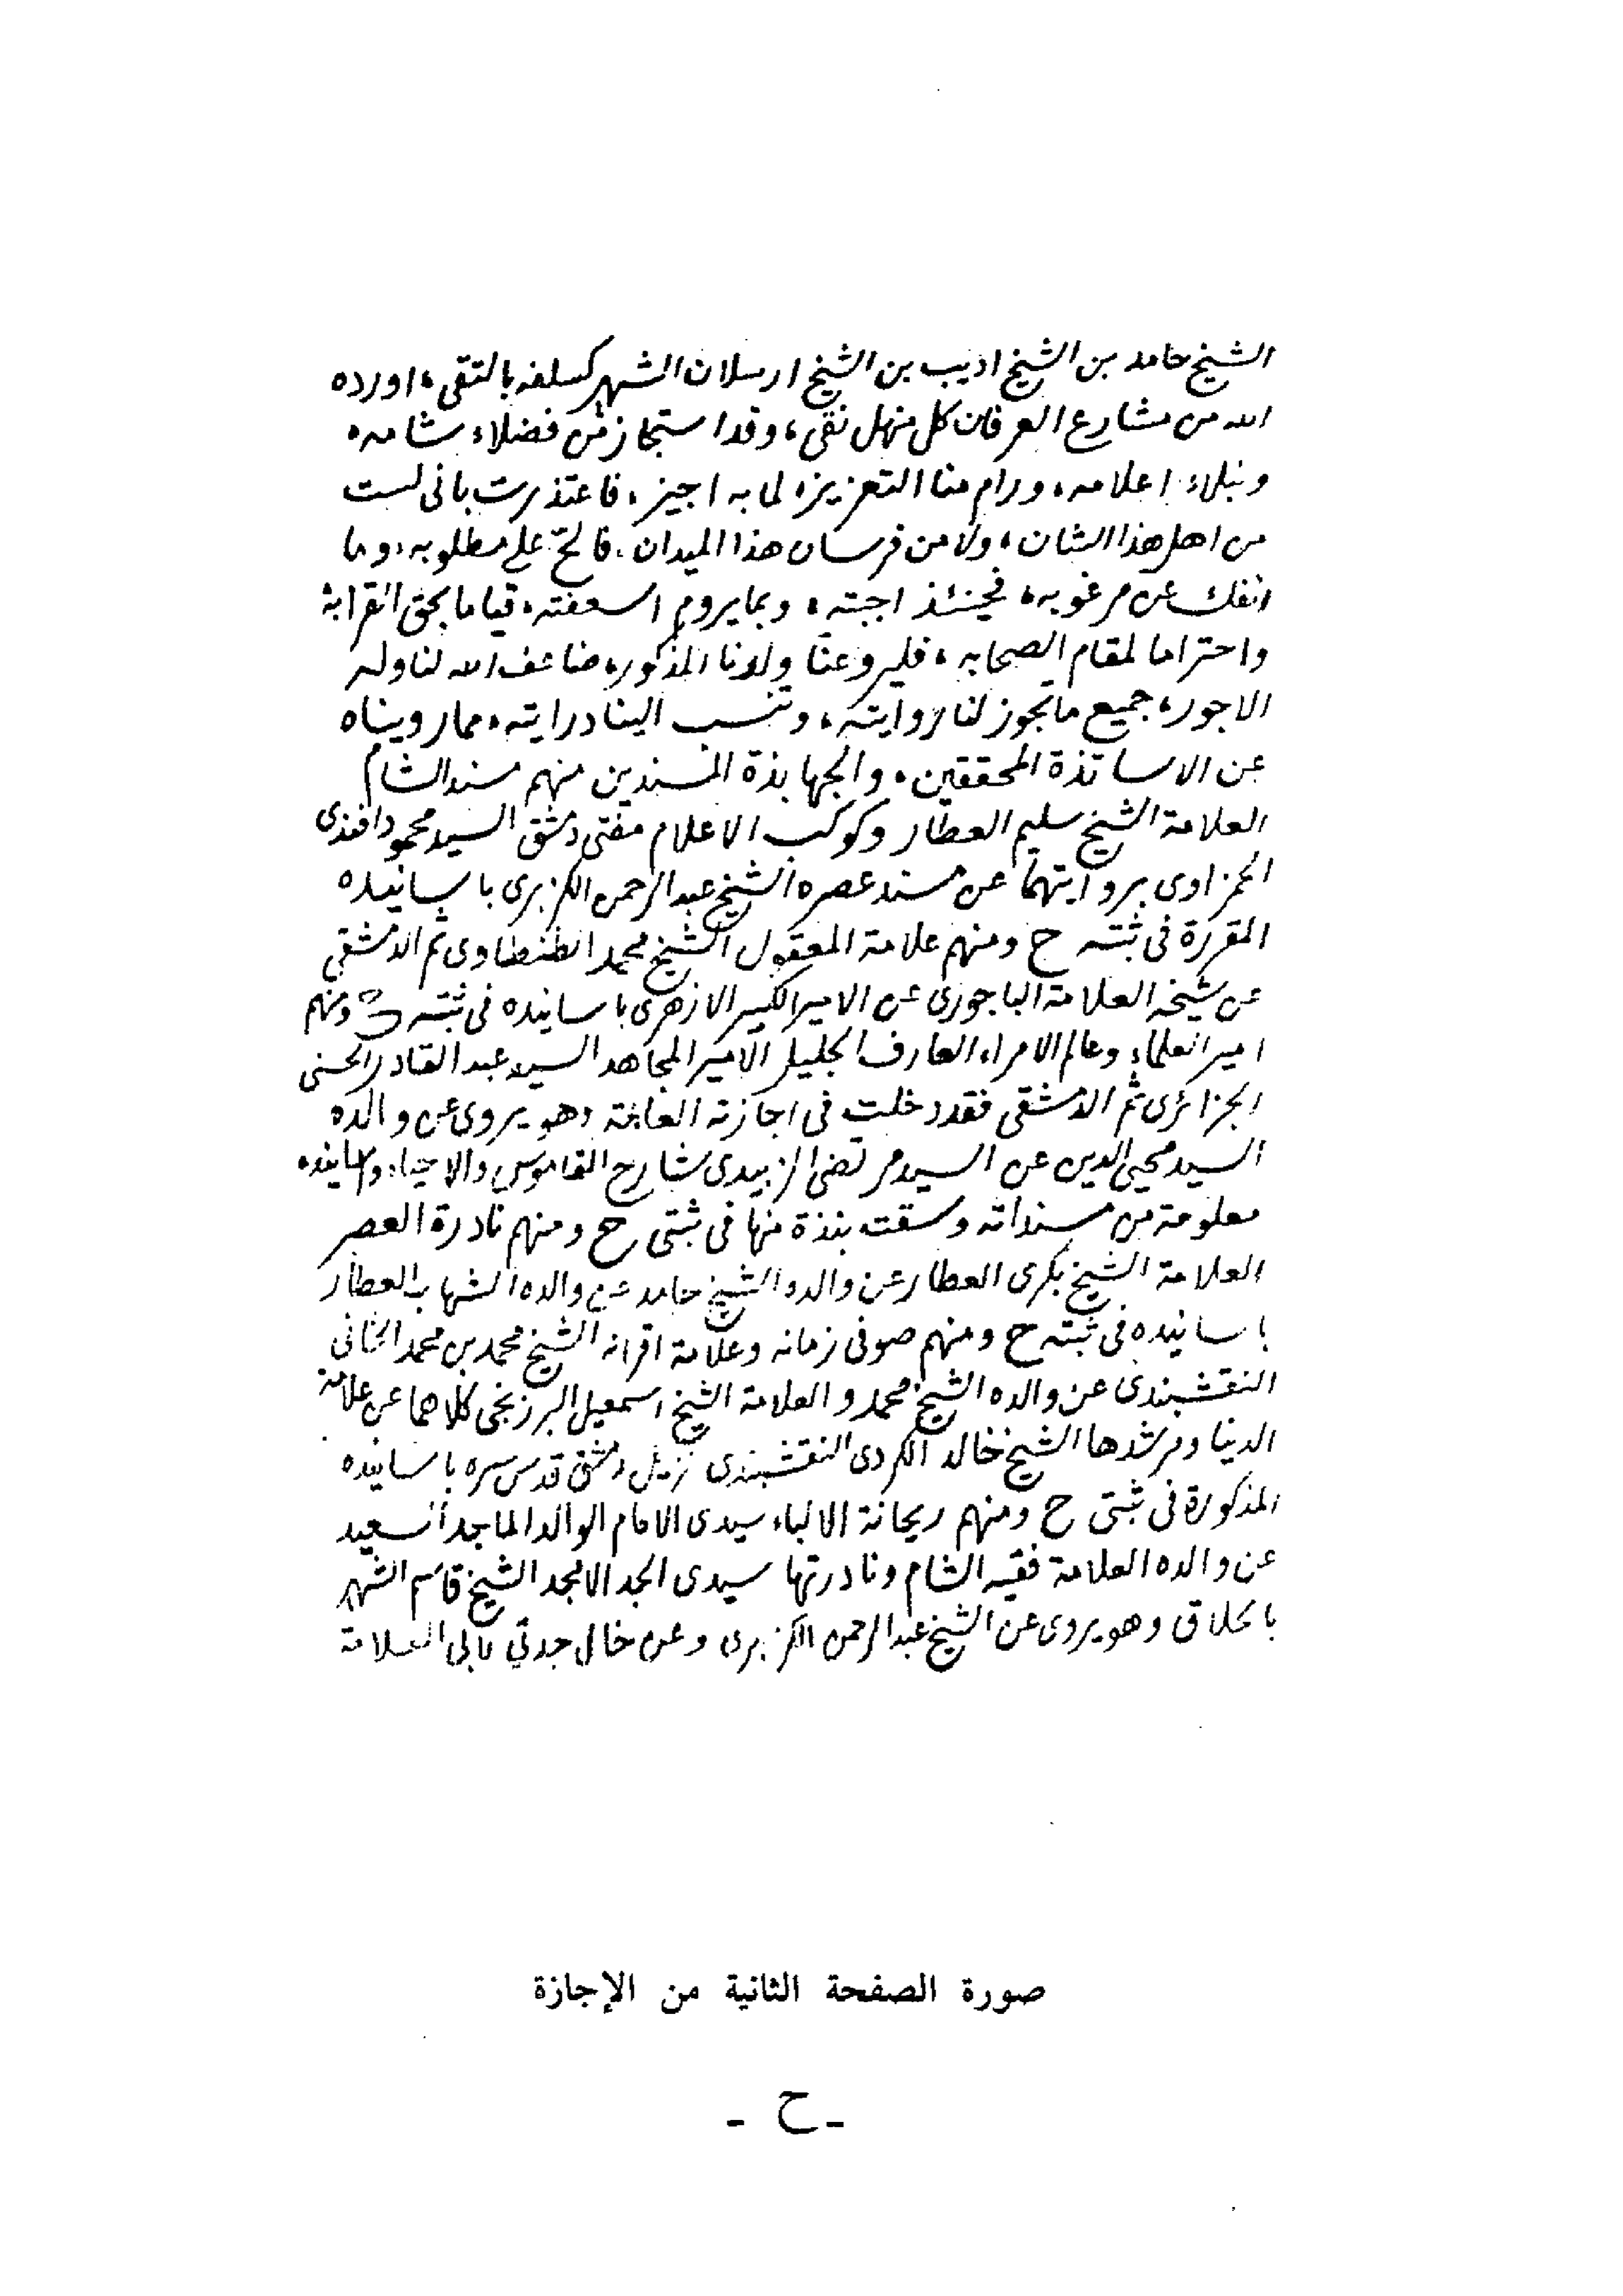 الشيخ حامد بن الشيخ اديب بن الشيخ ارسلان الشهير كسلفه بالتقى، اورده
الله من مشارع العرفان كل منهل نقى، وقد استجاز من فضلاء شامه
ونبلاء اعلامه، ورام منا التعزيز، لما به اجيز، فاعتذرت بانى لست
من اهل هذا الشان، ولا من فرسان هذا الميدان، فالحّ على مطلوبه، وما
انفك عن مرغوبه، فحينئذ اجبته، وبما يروم اسعفته، قياما بحق القرابة
واحتراما لمقام الصحابه، فليرو عنا ولدنا المذكور، ضاعف الله لنا وله
الاجور، جميع ما تجوز لنا روايته، وتنسب الينا درايته، مما رويناه
عن الاساتذة المحققين، والجهابذة المسندين منهم مسند الشام
العلامة الشيخ سليم العطار وكوكب الاعلام مفتى دمشق السيد محمود افندى
الحمزاوى بروايتهما عن مسند عصره الشيخ عبد الرحمن الكزبرى باسانيده
المقررة فى ثبته ح ومنهم علامة المعقول الشيخ محمد الطنطاوى ثم الدمشقى
عن شيخه العلامة الباجورى عن الامير الكبير الازهرى باسانيده فى ثبته ح ومنهم
امير العلماء وعالم الامراء العارف الجليل الامير المجاهد السيد عبد القادر الحسنى
الجزائرى ثم الدمشقى فقد دخلت فى اجازته العامة وهو يروى عن والده
السيد محيى الدين عن السيد مرتضى الزبيدى شارح القاموس والاحياء واسانيده
معلومة من مسنداته وسقت نبذة منها فى ثبتى ح ومنهم نادرة العصر
العلامة الشيخ بكرى العطار عن والده الشيخ حامد عن والده الشهاب العطار
باسانيده فى ثبته ح ومنهم صوفى زمانه وعلامة اقرانه الشيخ محمد بن محمد الخانى
النقشبندى عن والده الشيخ محمد والعلامة الشيخ اسمعيل البرزنجى كلاهما عن علامة
الدنيا ومرشدها الشيخ خالد الكردى النقشبندى نزيل دمشق قدس سره باسانيده
المذكورة فى ثبتى ح ومنهم ريحانة الالباء سيدى الامام الوالد الماجد السعيد
عن والده العلامة فقيه الشام ونادرتها سيدى الجد الامجد الشيخ قاسم الشهير
بالحلاق وهو يروى عن الشيخ عبد الرحمن الكزبرى وعن خال جدتي لابى العلامة
صورة الصفحة الثانية من الإجازة
- ح -